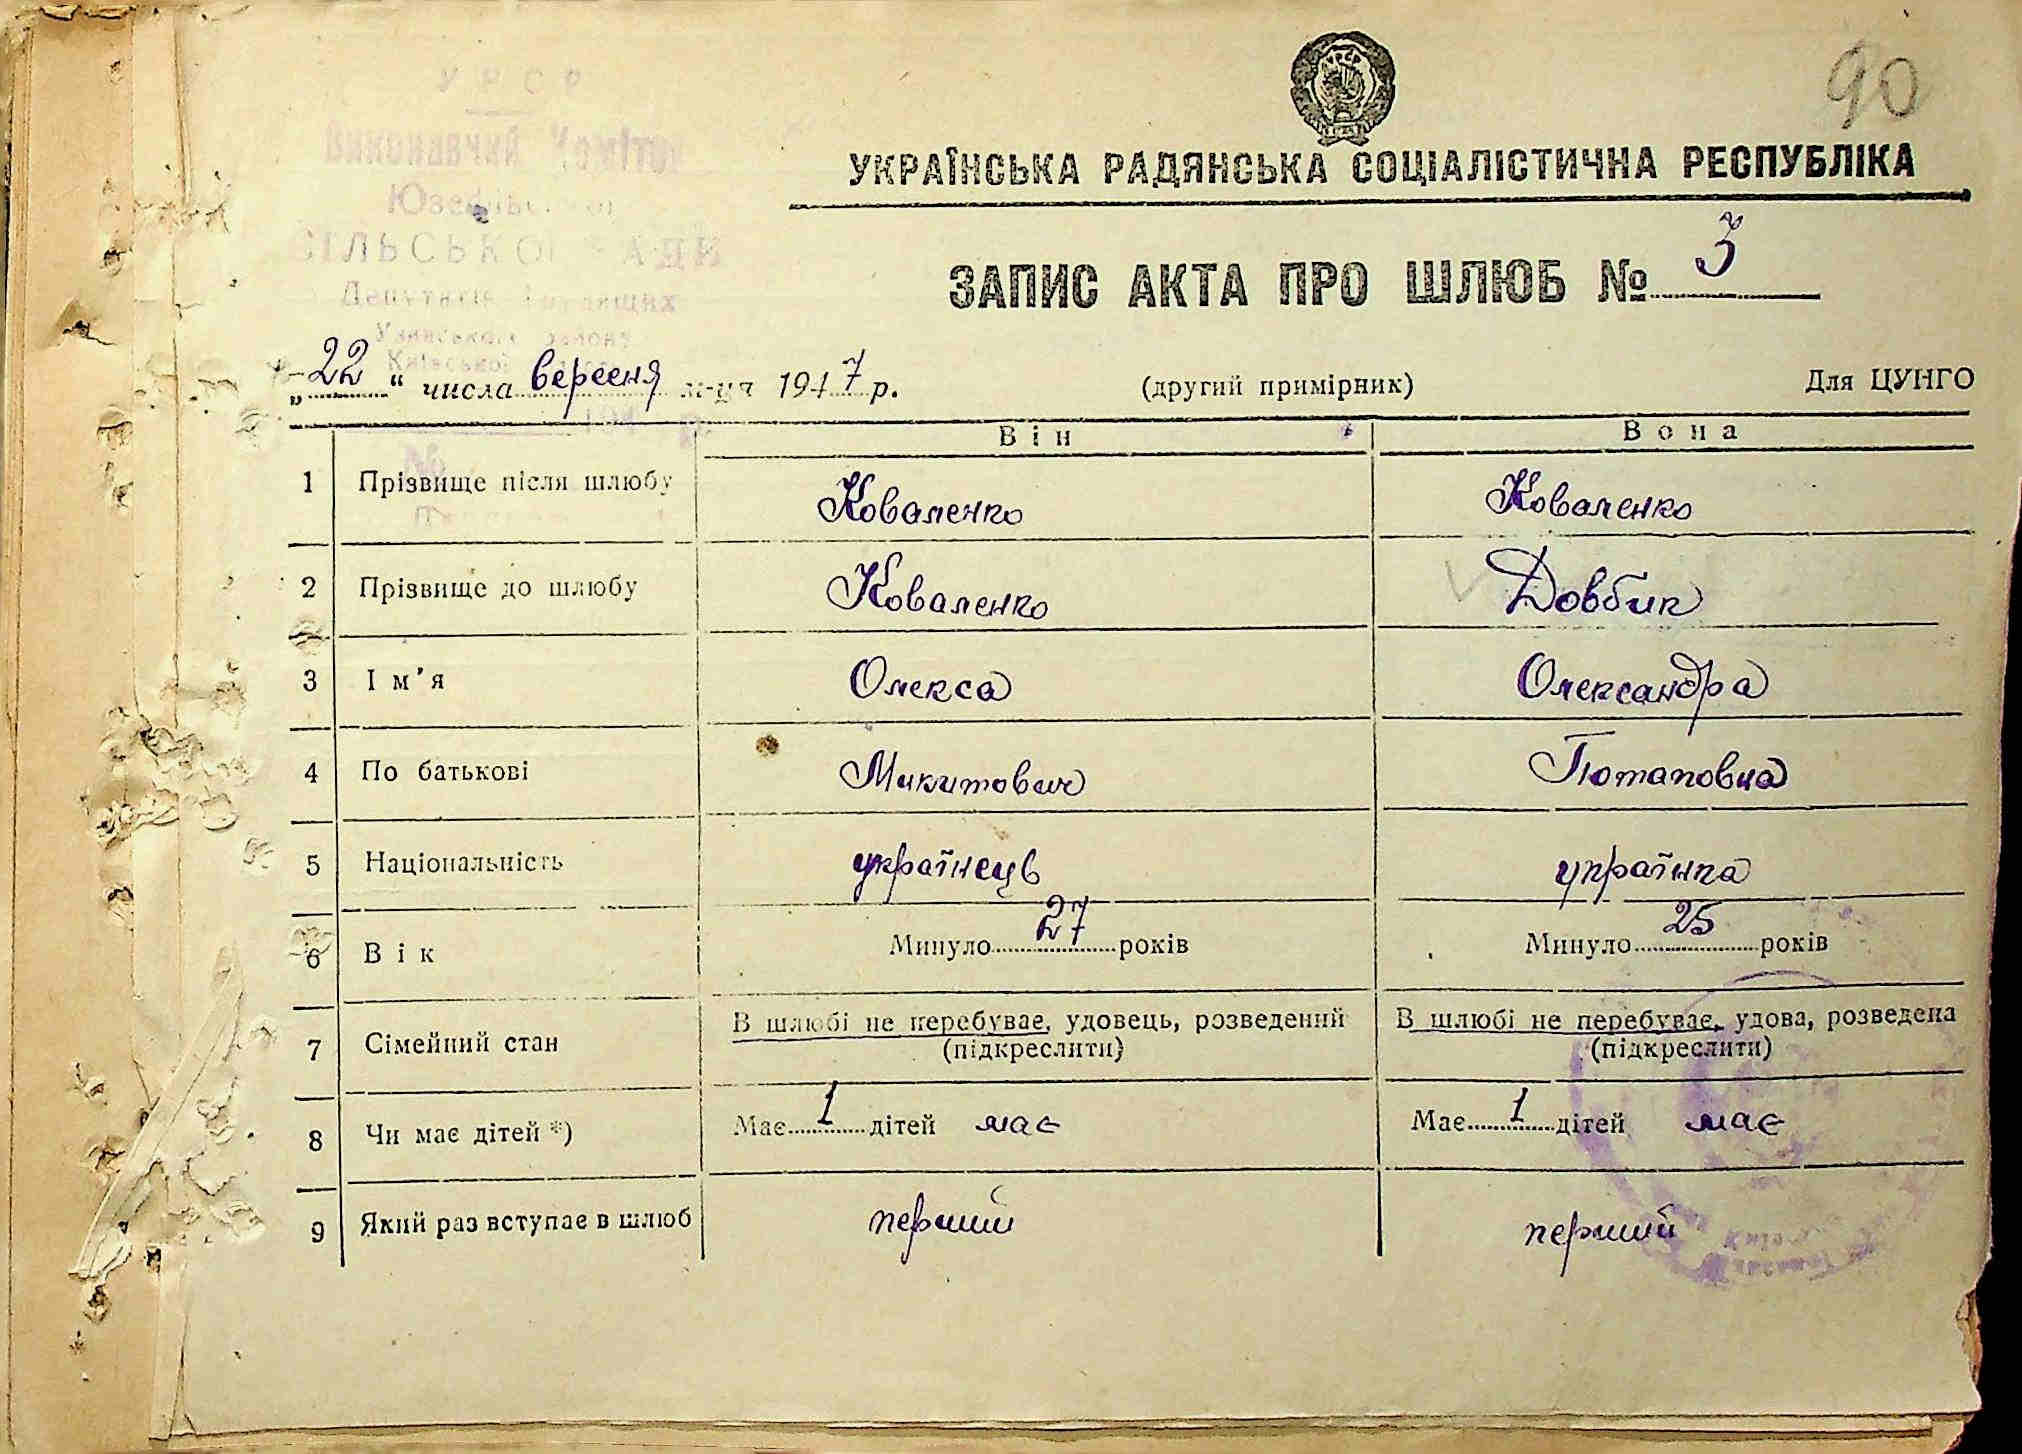 90
УРСР
Виконавчий Комітет
СІЛЬСЬКОЇ РАДИ
Депутатів Трудящих
Узинського району
Київської
УКРАЇНСЬКА РАДЯНСЬКА СОЦІАЛІСТИЧНА РЕСПУБЛІКА
ЗАПИС АКТА ПРО ШЛЮБ № 3
„22“ числа вересня м-ця 1947 р. (другий примірник) Для ЦУНГО
Він Вона
1 Прізвище після шлюбу Коваленко Коваленко
2 Прізвище до шлюбу Коваленко Довбик
3 Ім’я Олекса Олександра
4 По батькові Микитович Потаповна
5 Національність українець українка
6 Вік Минуло 27 років Минуло 25 років
7 Сімейний стан В шлюбі не перебуває, удовець, розведений В шлюбі не перебуває, удова, розведена
(підкреслити) (підкреслити)
8 Чи має дітей *) Має 1 дітей має Має 1 дітей має
9 Який раз вступає в шлюб перший перший